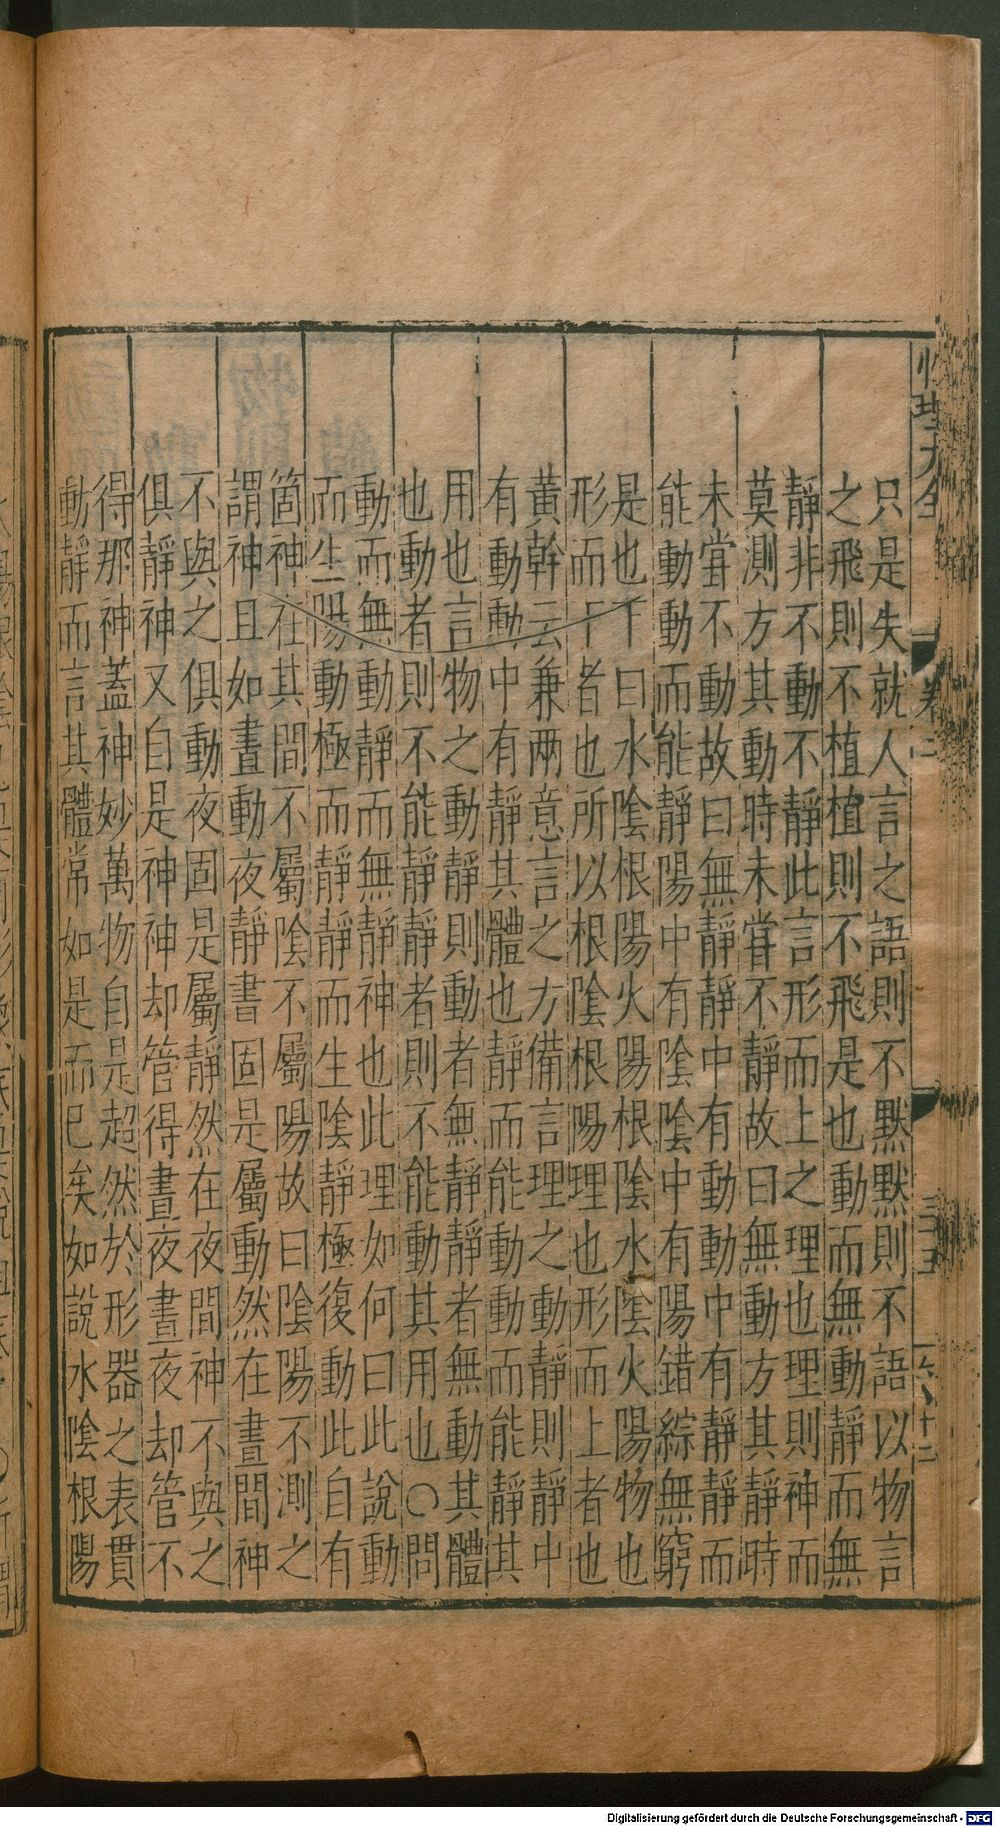 性理大全
卷二
只是失就人言之語則不默默則不語以物言
之飛則不植植則不飛是也動而無動靜而無
靜非不動不靜此言形而上之理也理則神而
莫測方其動時未甞不靜故曰無動方其靜時
未甞不動故曰無靜靜中有動動中有靜靜而
能動動而能靜陽中有陰陰中有陽錯綜無窮
是也下曰水陰根陽火陽根陰水陰火陽物也
形而下者也所以根陰根陽理也形而上者也
黃幹云兼兩意言之方備言理之動靜則靜中
有動動中有靜其體也靜而能動動而能靜其
用也言物之動靜則動者無靜靜者無動其體
也動者則不能靜靜者則不能動其用也○問
動而無動靜而無靜神也此理如何曰此說動
而生陽動極而靜靜而生陰靜極復動此自有
箇神在其間不屬陰不屬陽故曰陰陽不測之
謂神且如晝動夜靜書固是屬動然在晝間神
不與之俱動夜固是屬靜然在夜間神不與之
俱靜神又自是神神却管得晝夜晝夜却管不
得那神蓋神妙萬物自是超然於形器之表貫
動靜而言其體常如是而已矣如說水陰根陽
Digitalisierung gefördert durch die Deutsche Forschungsgemeinschaft - DFG